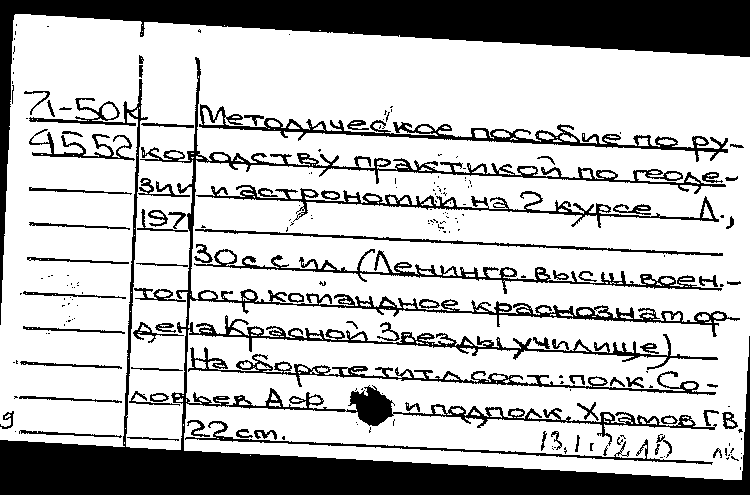 71-50К Методическое пособие по ру-
4552 ководству практикой по геоде-
зии и астрономии на 2 курсе. Л.,
1971.
30 с. с ил. (Ленингр. высш. воен.-
топогр. командное краснознам. ор-
дена Красной Звезды училище).
На обороте тит. л. сост.: полк. Со-
ловьев А.Ф. и подполк. Храмов Г.В.
22 см.
13.1.72 ЛВ